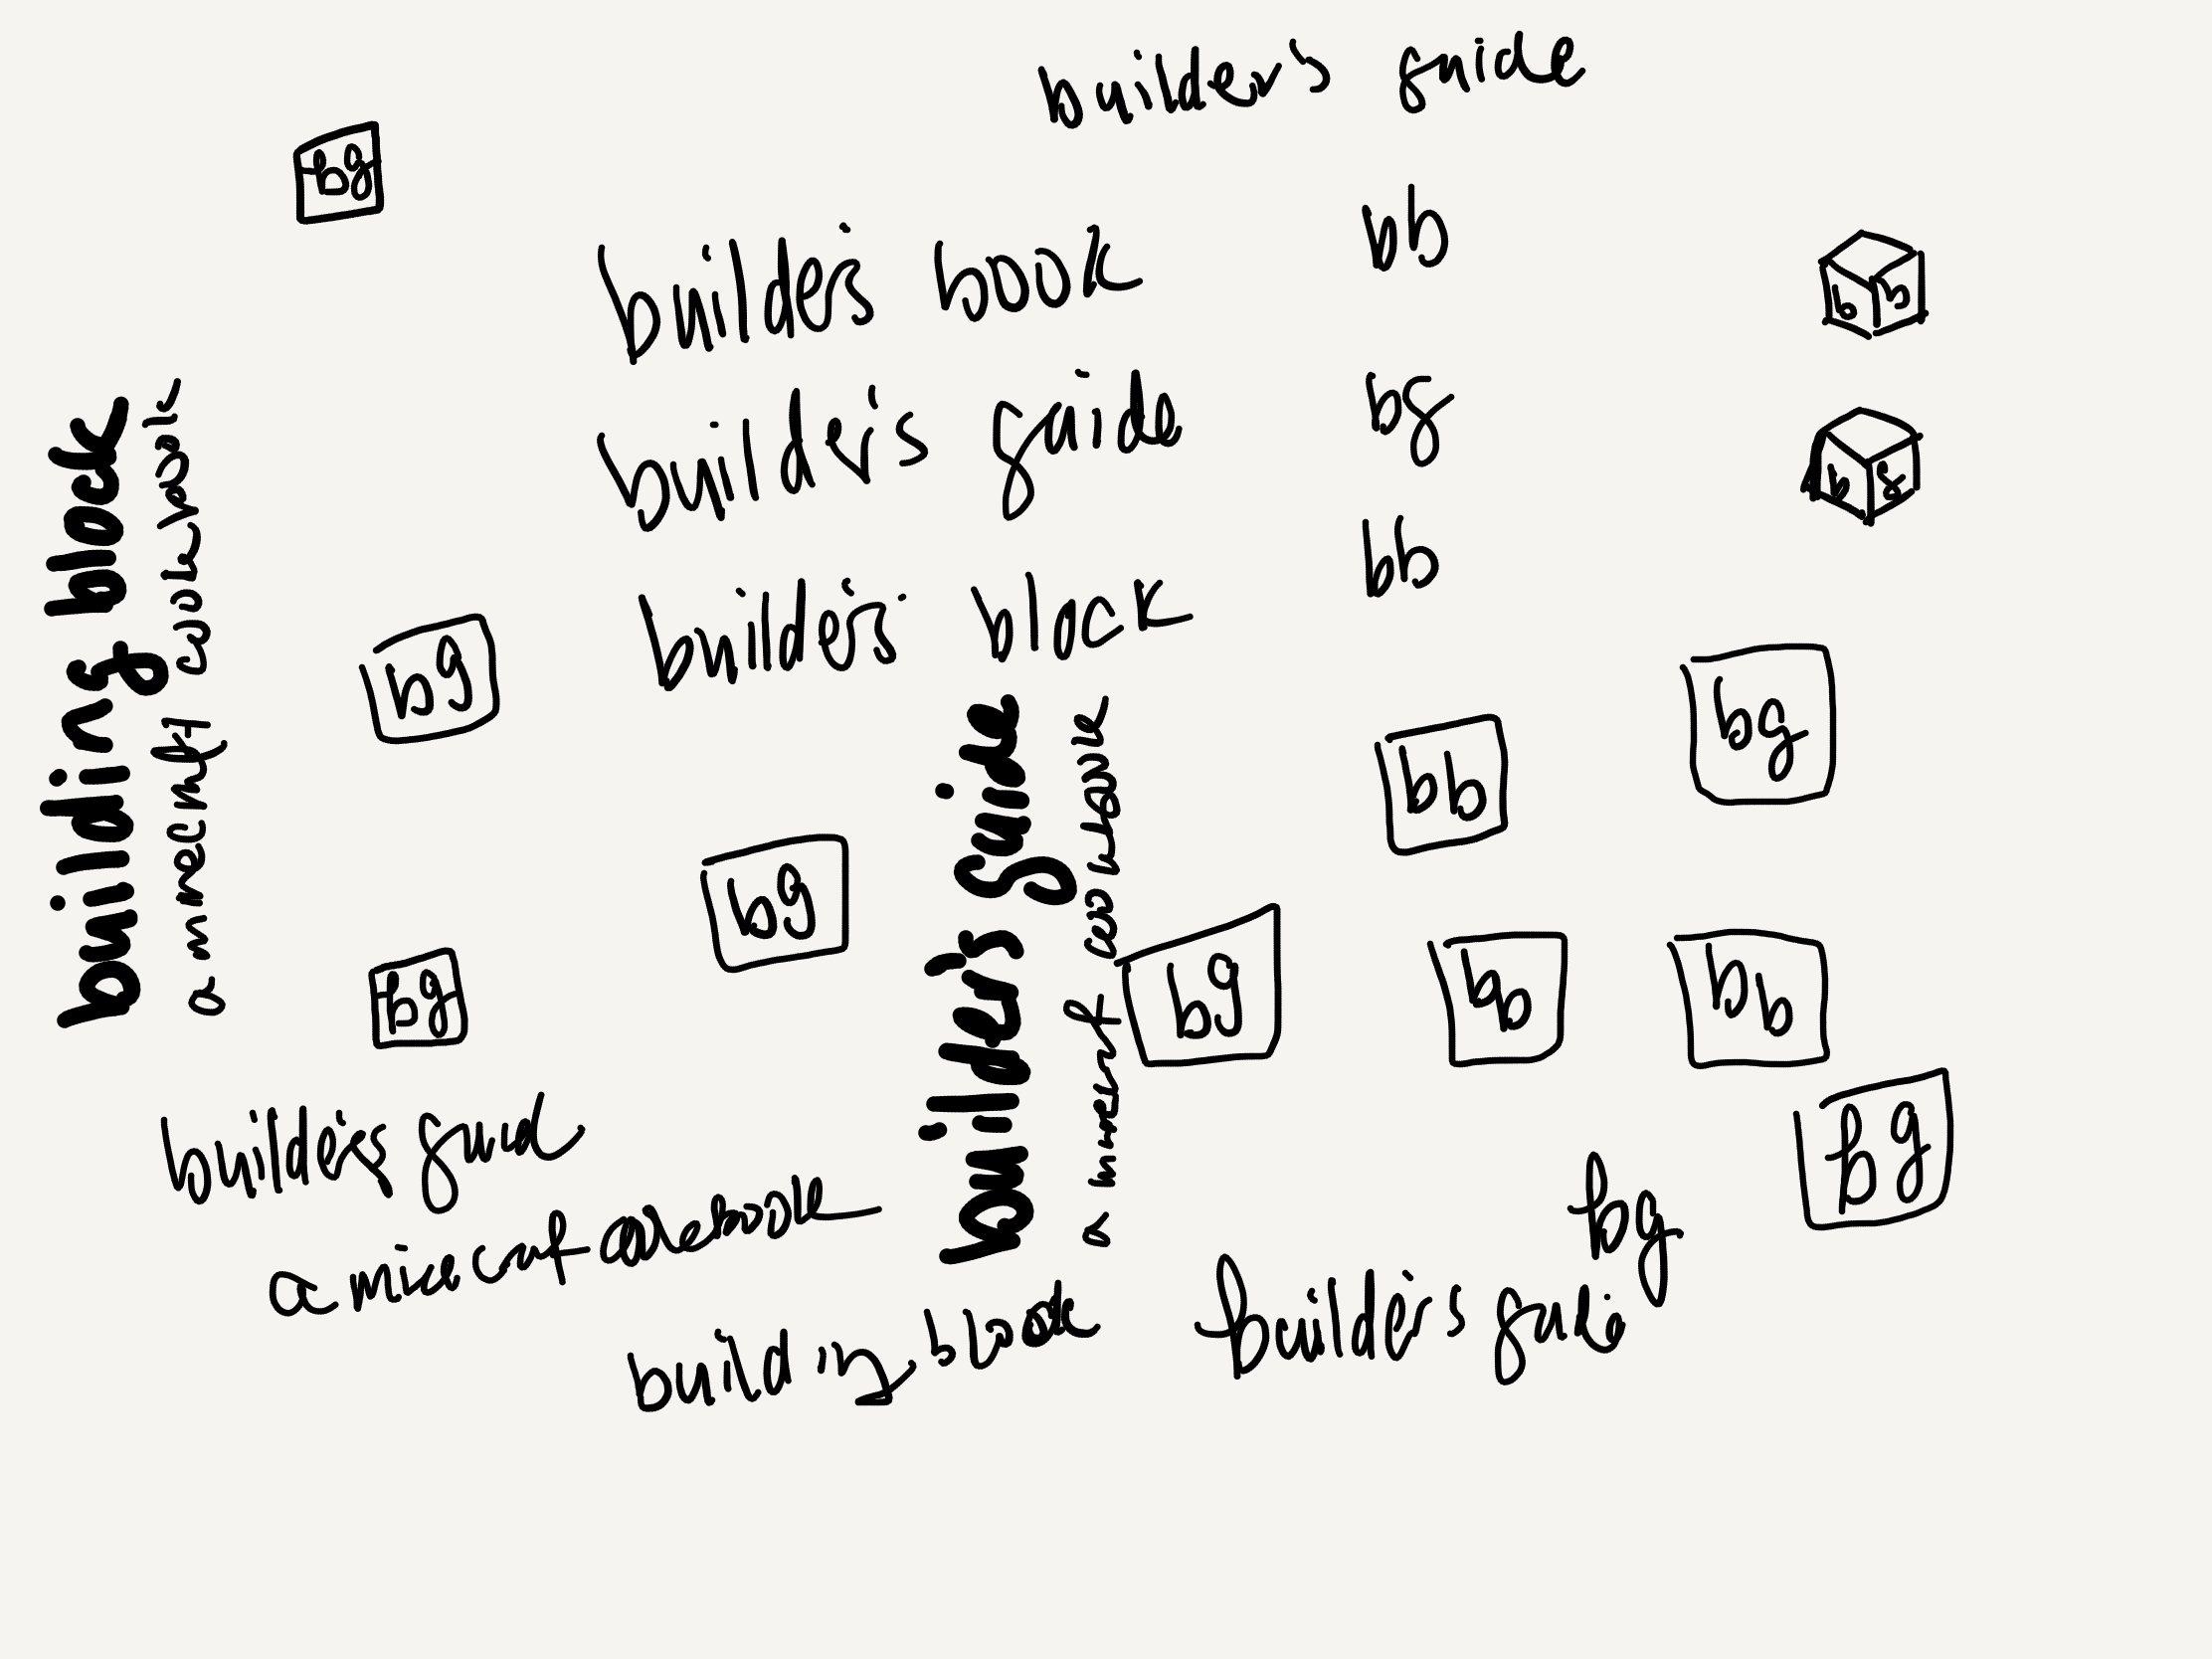 builder's guide
bg
builder's book
bb
bb
builder's guide
bg
bg
builder's block
bb
building block
a minecraft cookbook
bg
bg
bb
bg
builder's guide
a minecraft cookbook
bg
bb
bb
bg
builder's
a minecraft
bg
bg
building block
builder's